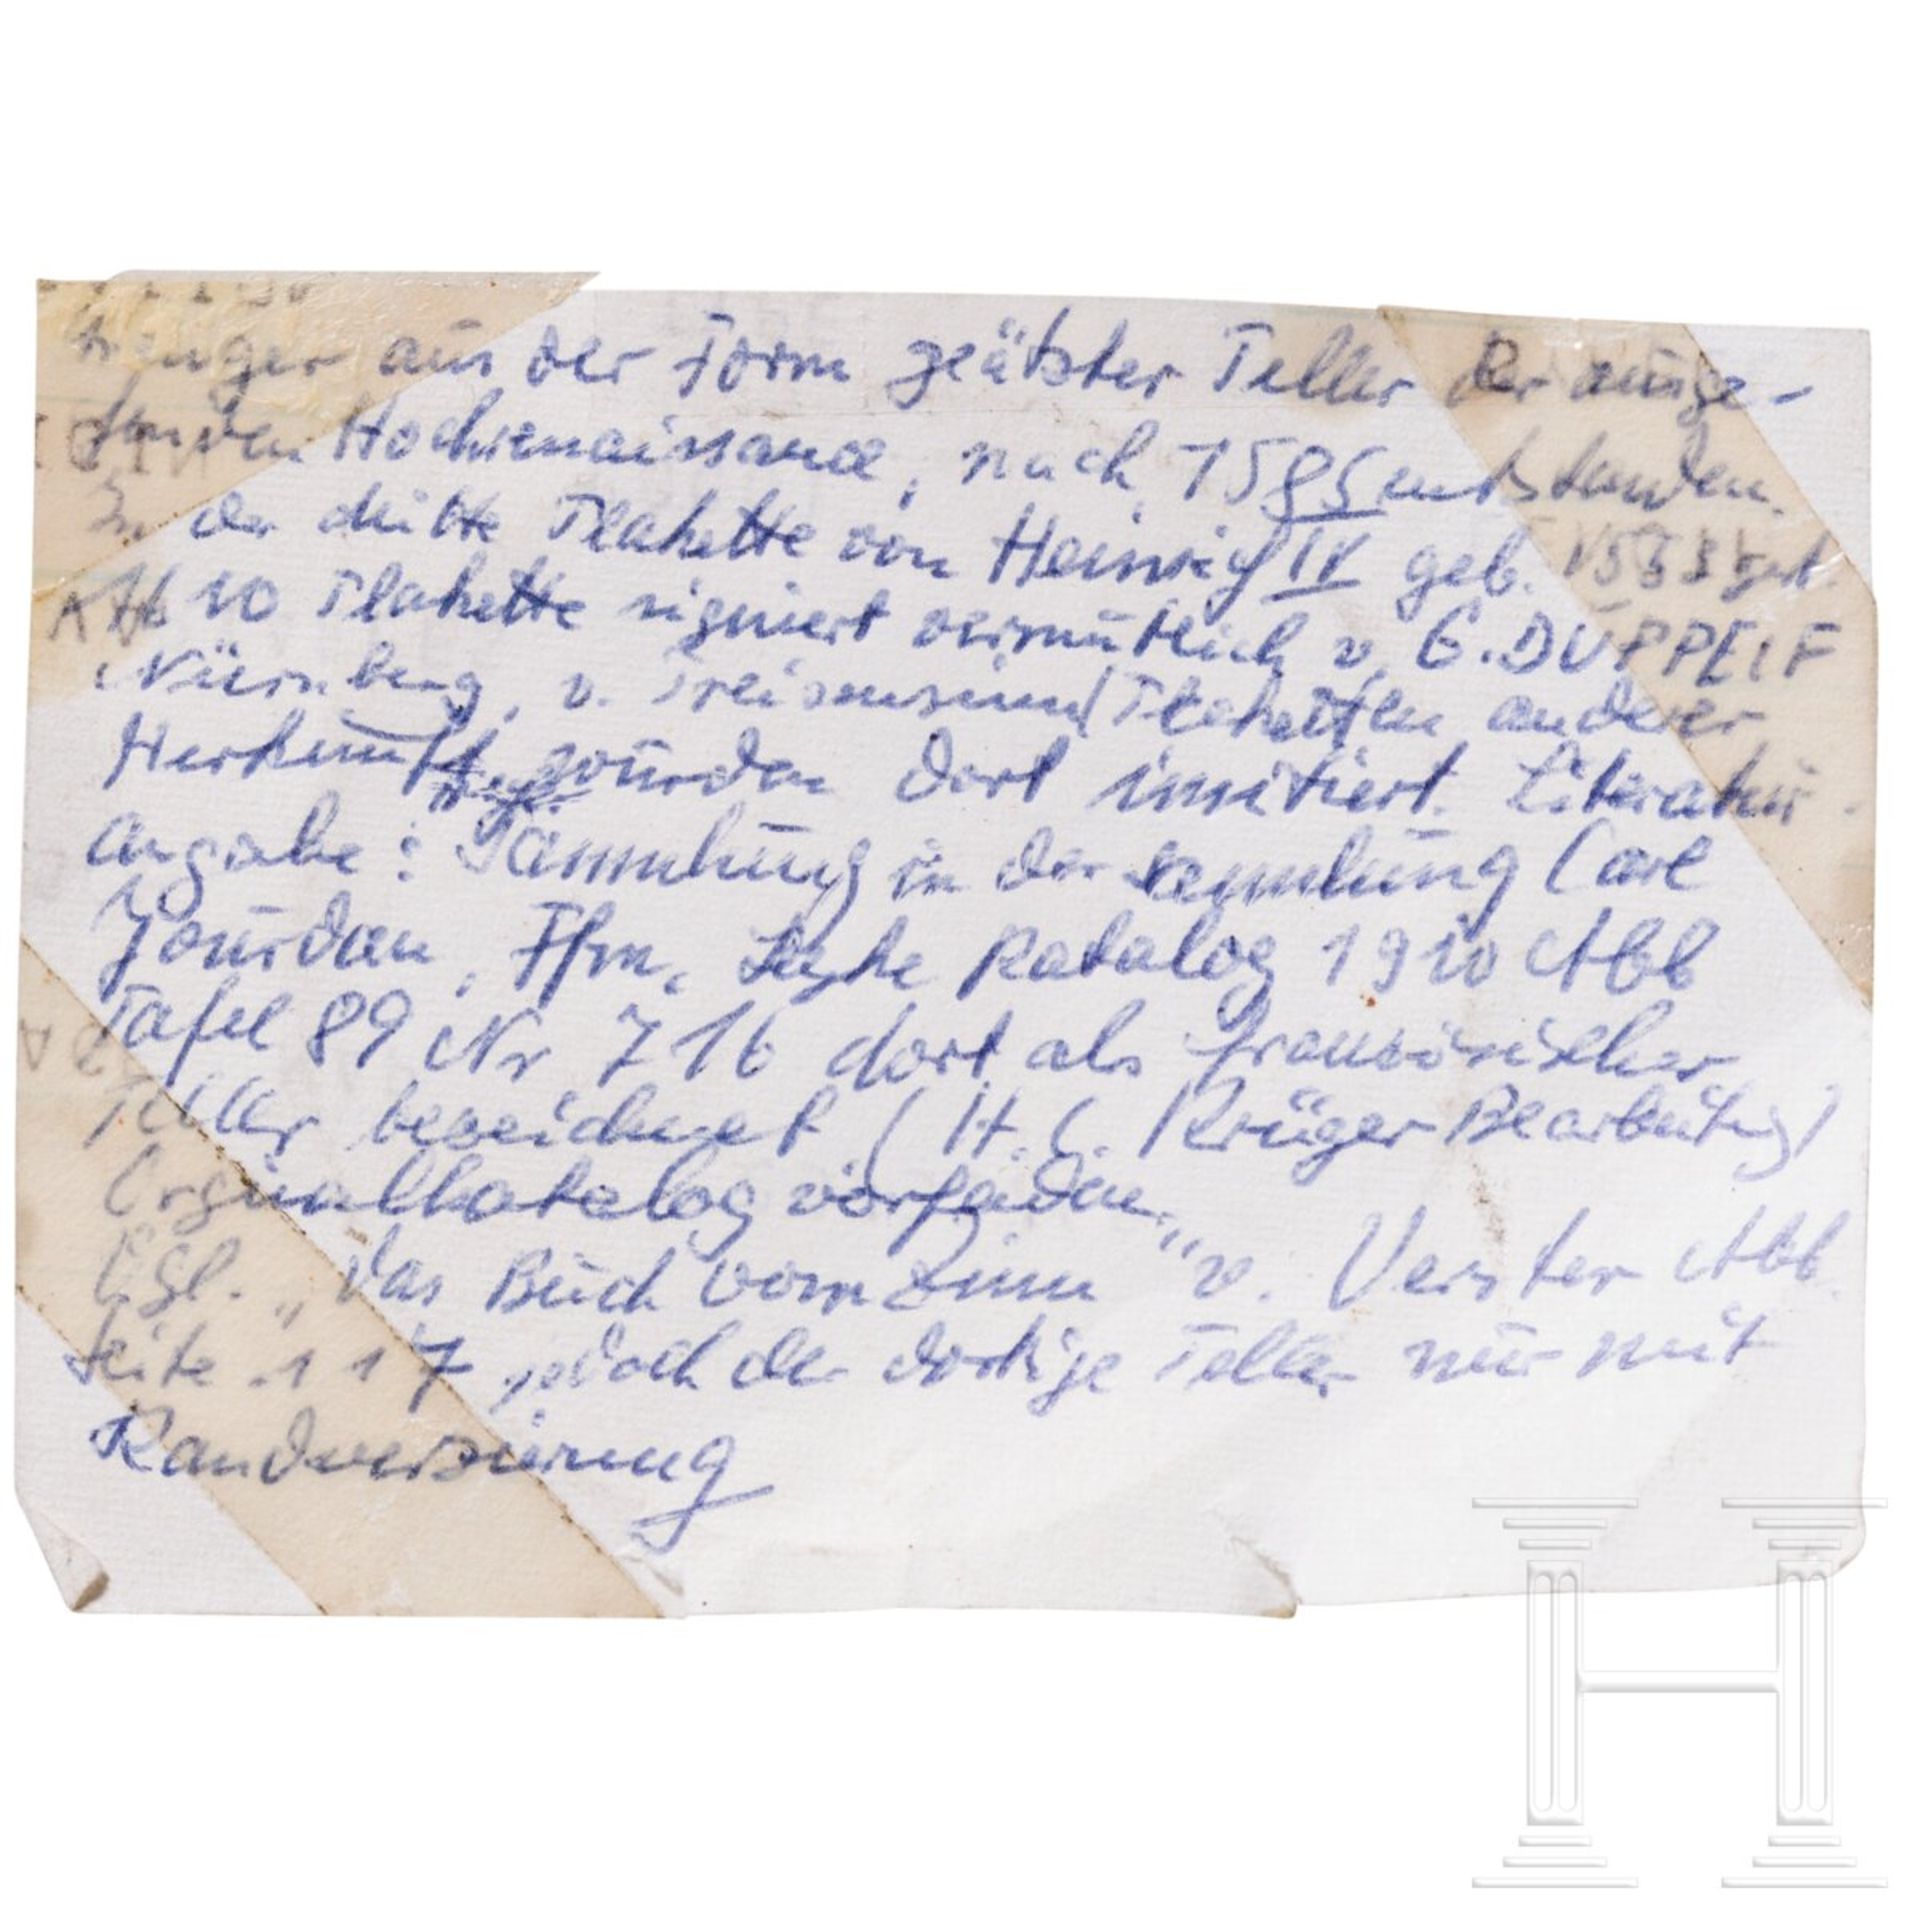 aus der Form geätzter Teller der ausge-
henden Hochrenaissance, nach 1585 entstanden.
In der dritte Plakette von Heinrich IV geb. 1553 gest.
Ab 10 Plakette signiert vermutlich v. G. DÜPPEIF
Nürnberg, v. Plaketten anderer
Herkunft wurden dort imitiert. Literatur-
angabe: Sammlung in der Sammlung Carl
Jourdan, Ffm, siehe Katalog 1910 Abb
Tafel 89 Nr 716 dort als französischer
Teller bezeichnet (H. C. Krüger Bearbeitung)
Orginalkatalog vorhanden.
Vgl. „Das Buch vom Zinn" v. Verster Abb.
Seite 117, jedoch der dortige Teller nur mit
Randverzierung